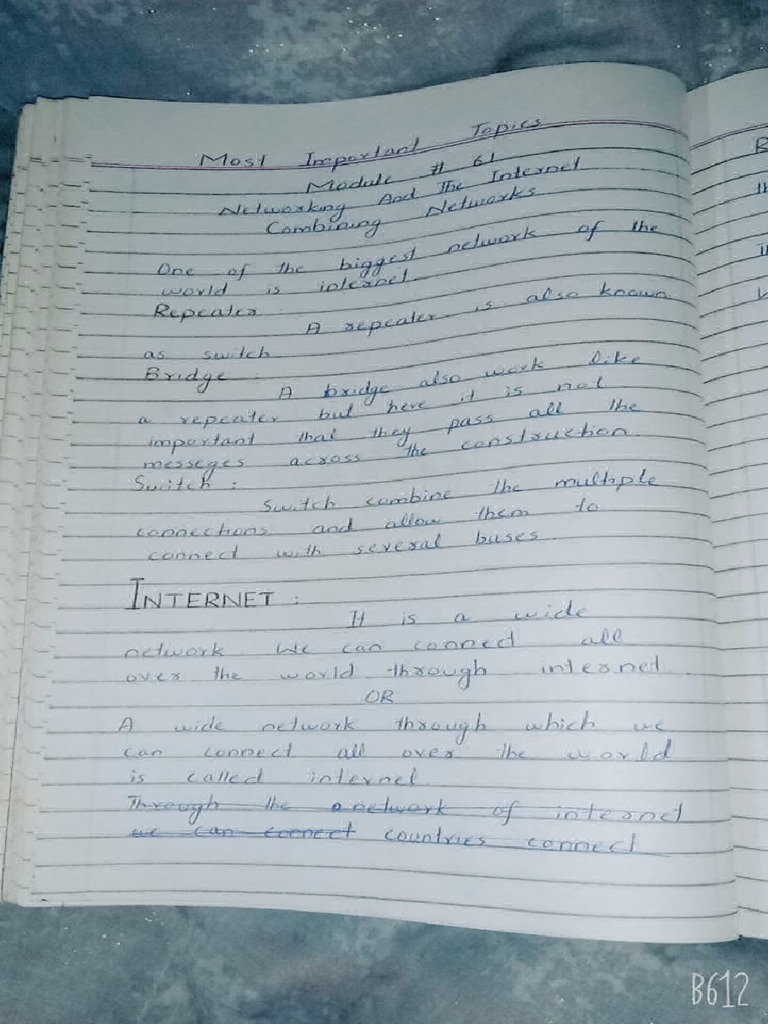 Most Important Topics
Module # 61
Networking And The Internet
Combining Networks
One of the biggest network of the
world is internet
Repeater
A repeater is also known
as switch
Bridge
A bridge also work like
a repeater but here it is not
important that they pass all the
messeges across the construction.
Switch :
Switch combine the multiple
connections and allow them to
connect with several buses
INTERNET :
It is a wide
network We can connect all
over the world through internet
OR
A wide network through which we
can connect all over the world
is called internet
Through the network of internet
we can connect countries connect
B612